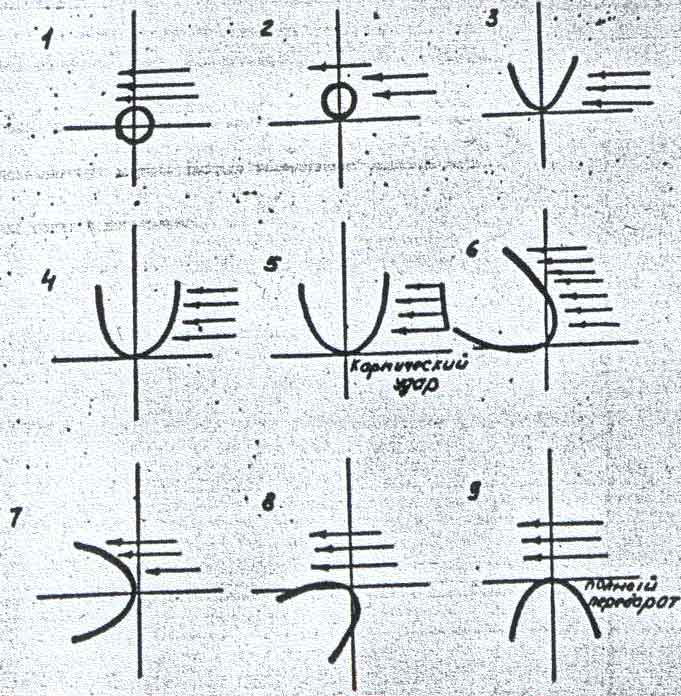 1
2
3
4
5
6
Кармический
удар
7
8
9
полный
переворот